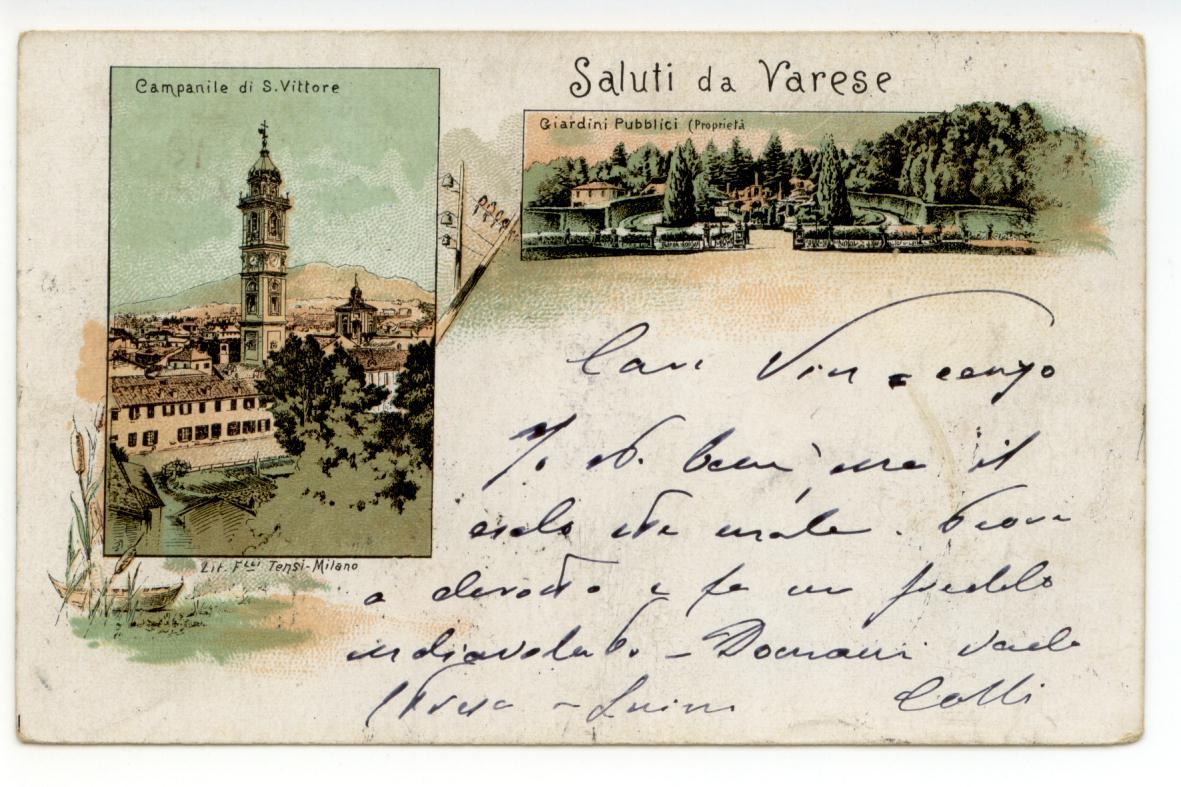 Saluti da Varese
Campanile di S. Vittore
Giardini Pubblici (Proprietà
Lit. F.lli Tensi-Milano
Caro Vincenzo
Io sto bene, ma il
cielo sta male. Piove
a dirotto e fa un freddo
indiavolato. - Domani vado
- Luino Colli